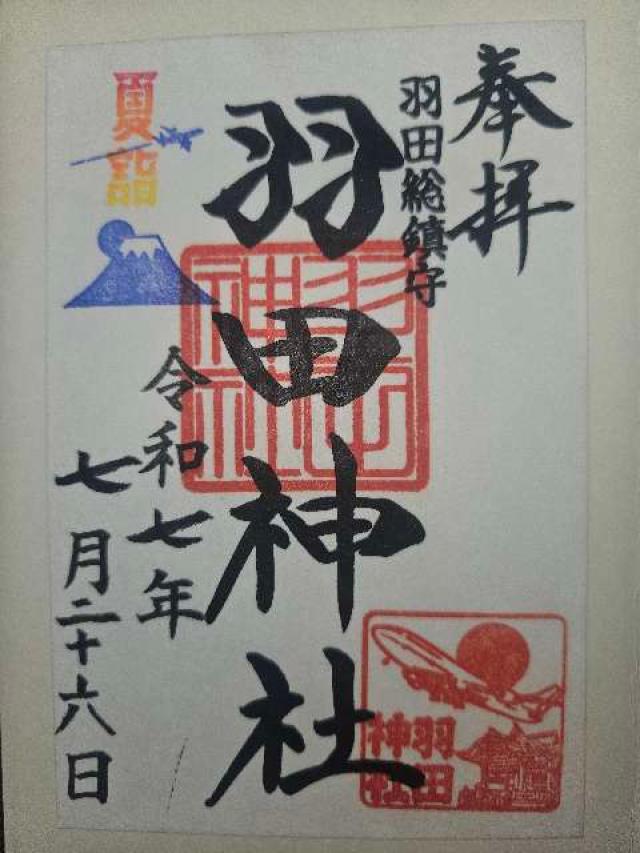 奉拝
羽田総鎮守
羽田神社
羽田
神社
夏詣
令和七年
七月二十六日
羽田
神社